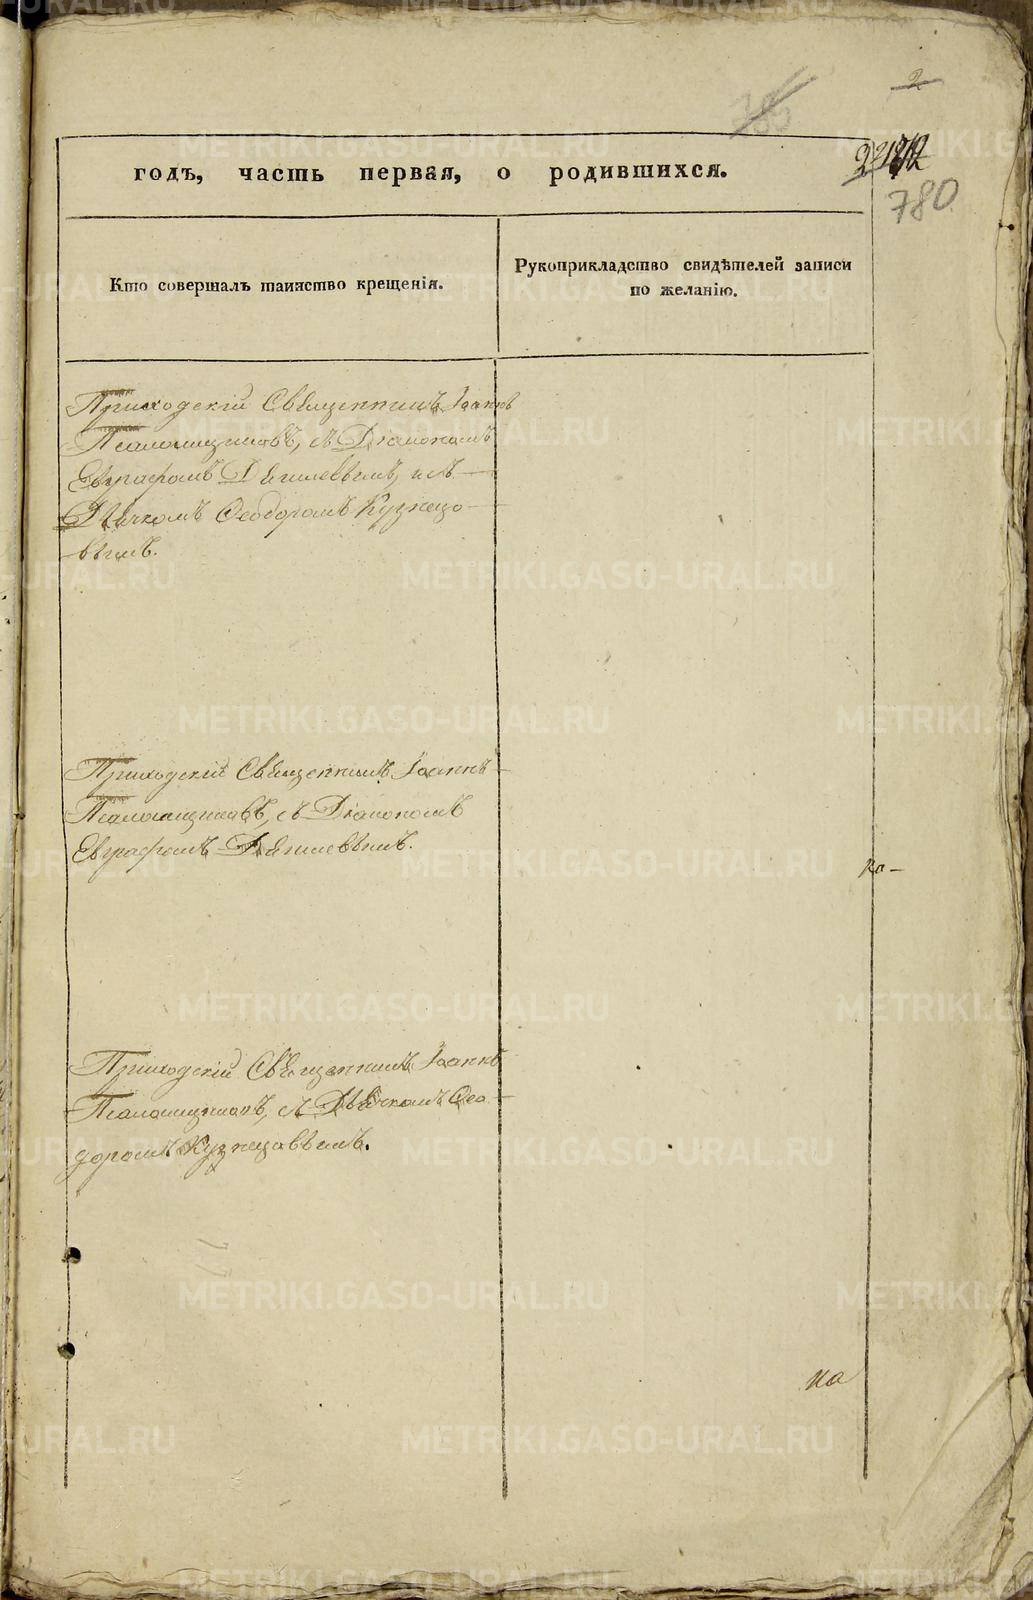 2
780
годъ, часть первая, о родившихся.
Кто совершалъ таинство крещенія.
Рукоприкладство свидѣтелей записи
по желанію.
Приходскій Священникъ Іоаннъ
съ Діакономъ
Евграфомъ и съ
Дьячкомъ Ѳеодоромъ Кузнецо-
вымъ.
Приходскій Священникъ Іоаннъ
съ Діакономъ
Евграфомъ
Приходскій Священникъ Іоаннъ
съ Дьячкомъ Ѳео-
доромъ Кузнецовымъ.
на-
на
METRIKI.GASO-URAL.RU